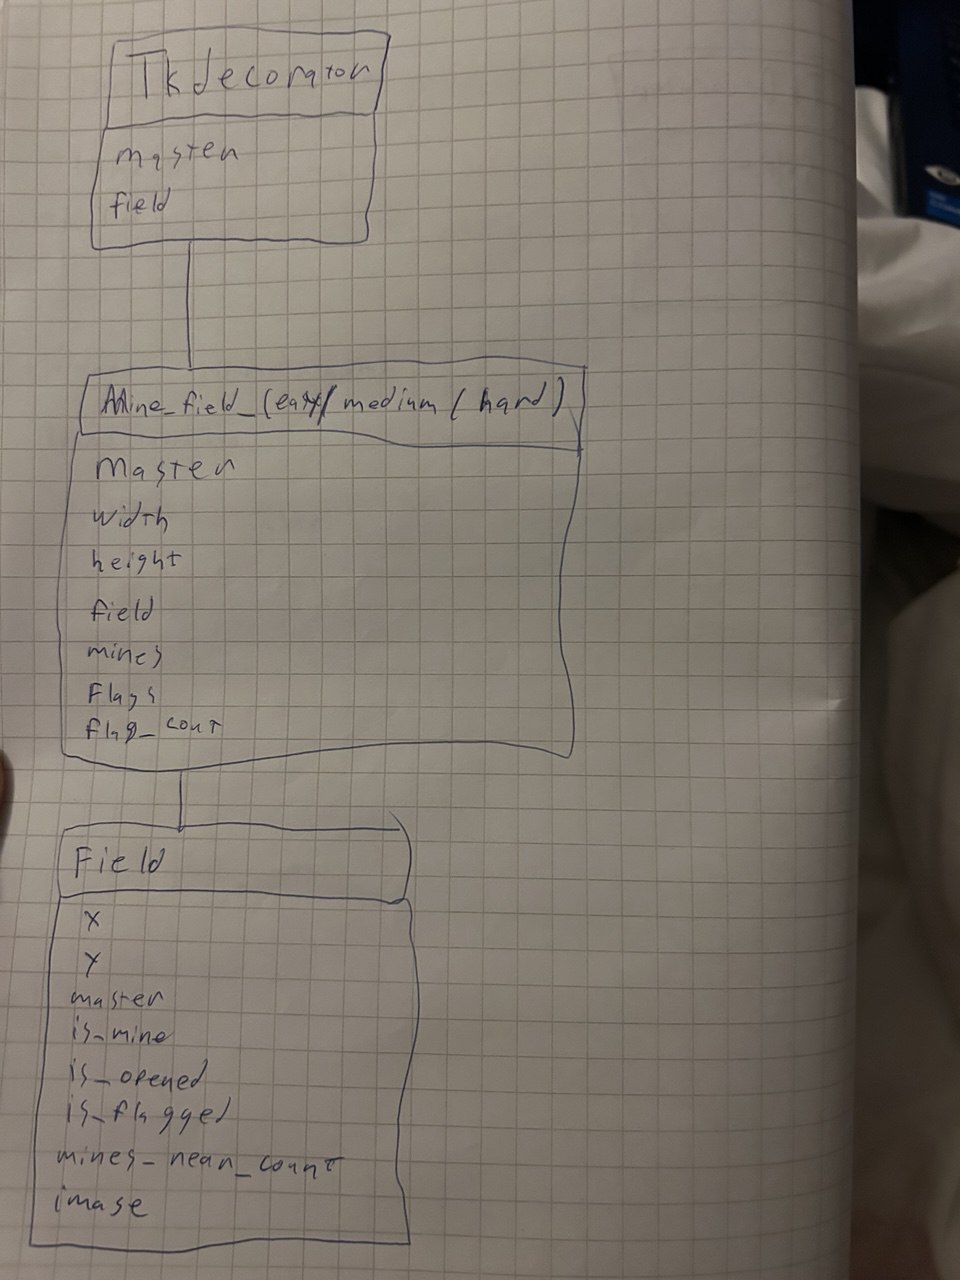 Tkdecorator
master
field
Mine_field_(easy/medium/hard)
Master
width
height
field
mines
Flags
flag_cont
Field
x
y
master
is_mine
is_opened
is_flagged
mines_near_count
image